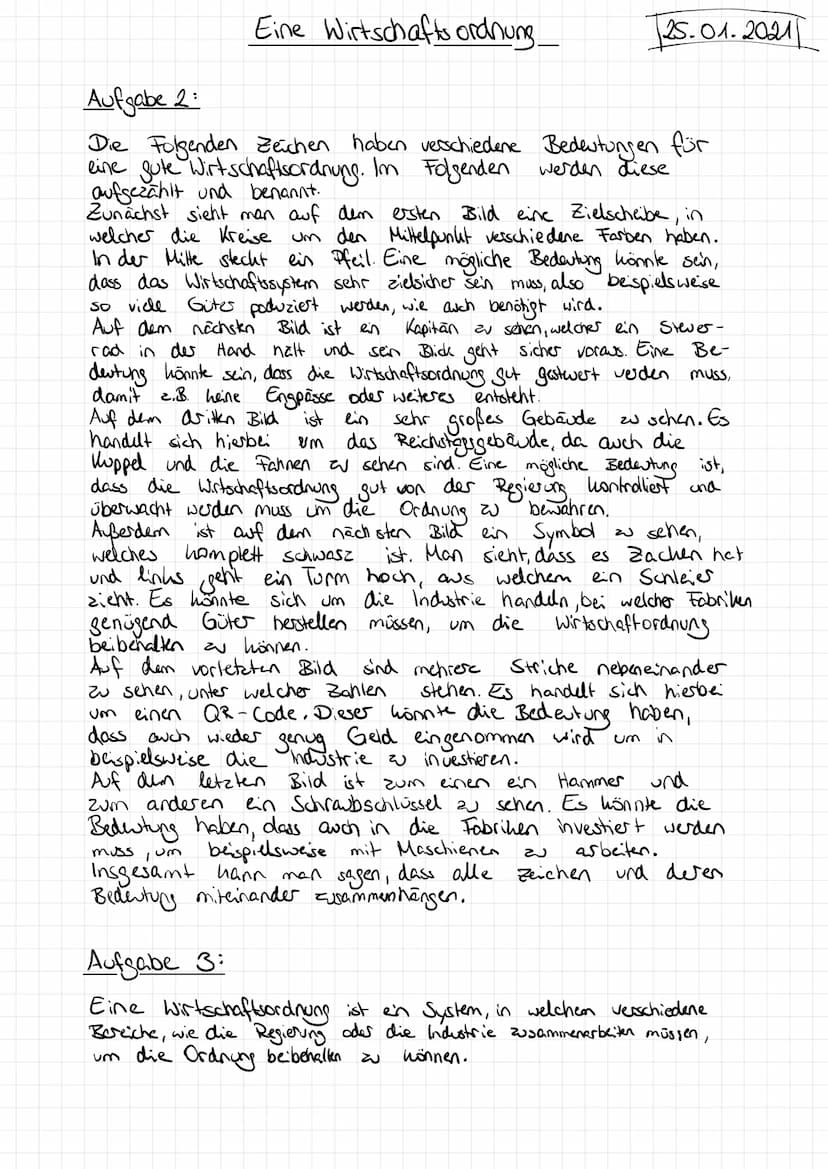 Eine Wirtschaftsordnung
25.01.2021
Aufgabe 2:
Die Folgenden Zeichen haben verschiedene Bedeutungen für
eine gute Wirtschaftsordnung. Im Folgenden werden diese
aufgezählt und benannt.
Zunächst sieht man auf dem ersten Bild eine Zielscheibe, in
welcher die Kreise um den Mittelpunkt verschiedene Farben haben.
In der Mitte steckt ein Pfeil. Eine mögliche Bedeutung könnte sein,
dass das Wirtschaftssystem sehr zielsicher sein muss, also beispielsweise
so viele Güter poduziert werden, wie auch benötigt wird.
Auf dem nächsten Bild ist ein Kapitän zu sehen, welcher ein Steuer-
rad in der Hand hält und sein Blick geht sicher voraus. Eine Be-
deutung könnte sein, dass die Wirtschaftsordnung gut gesteuert werden muss,
damit z.B. keine Engpässe oder weiteres entsteht.
Auf dem dritten Bild ist ein sehr großes Gebäude zu sehen. Es
handelt sich hierbei um das Reichstagsgebäude, da auch die
Kuppel und die Fahnen zu sehen sind. Eine mögliche Bedeutung ist,
dass die Wirtschaftsordnung gut von der Regierung kontrolliert und
überwacht werden muss um die Ordnung zu bewahren.
Außerdem ist auf dem nächsten Bild ein Symbol zu sehen,
welches komplett schwarz ist. Man sieht, dass es Zacken hat
und links geht ein Turm hoch, aus welchem ein Schleier
zieht. Es könnte sich um die Industrie handeln, bei welcher Fabriken
genügend Güter herstellen müssen, um die Wirtschaftordnung
beibehalten zu können.
Auf dem vorletzten Bild sind mehrere Striche nebeneinander
zu sehen, unter welcher Zahlen stehen. Es handelt sich hierbei
um einen QR-Code. Dieser könnte die Bedeutung haben,
dass auch wieder genug Geld eingenommen wird um in
beispielsweise die Industrie zu investieren.
Auf dem letzten Bild ist zum einen ein Hammer und
zum anderen ein Schraubschlüssel zu sehen. Es könnte die
Bedeutung haben, dass auch in die Fabriken investiert werden
muss, um beispielsweise mit Maschienen zu arbeiten.
Insgesamt kann man sagen, dass alle Zeichen und deren
Bedeutung miteinander zusammenhängen.
Aufgabe 3:
Eine Wirtschaftsordnung ist ein System, in welchem verschiedene
Bereiche, wie die Regierung oder die Industrie zusammenarbeiten müssen,
um die Ordnung beibehalten zu können.